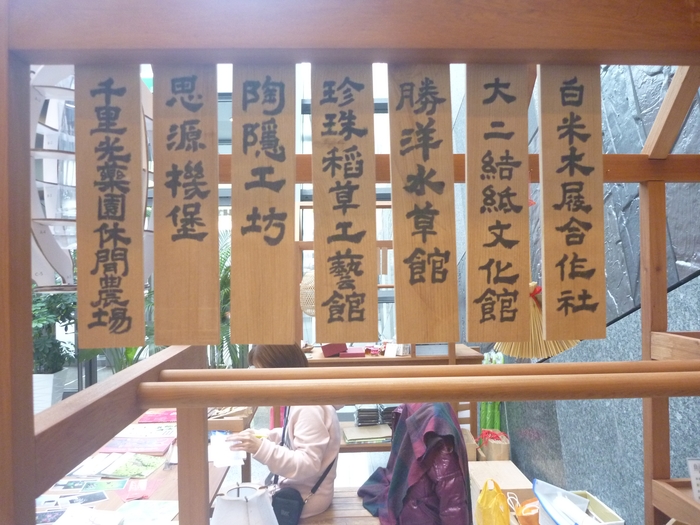 白米木屐合作社
大二結紙文化館
勝洋水草館
珍珠稻草工藝館
陶隱工坊
思源機堡
千里光藥園休閒農場